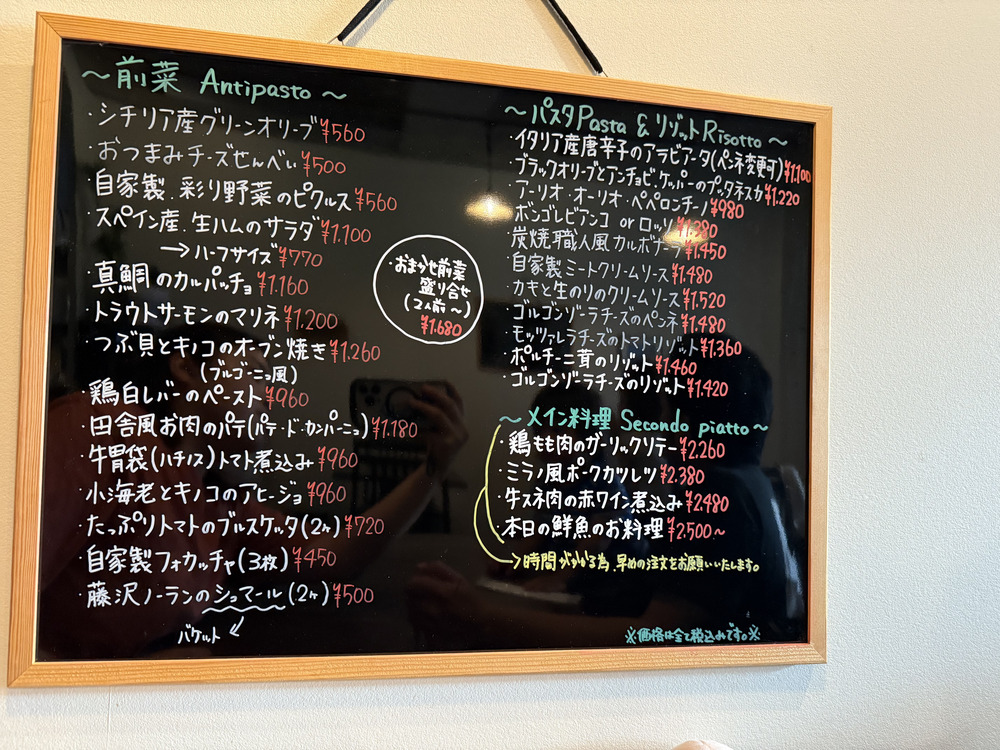 ～前菜 Antipasto～
・シチリア産グリーンオリーブ ¥560
・おつまみチーズせんべい ¥500
・自家製.彩り野菜のピクルス ¥560
・スペイン産.生ハムのサラダ ¥1.100
→ハーフサイズ ¥770
・真鯛のカルパッチョ ¥1.160
・トラウトサーモンのマリネ ¥1.200
・つぶ貝とキノコのオーブン焼き ¥1.260
(ブルゴーニュ風)
・鶏白レバーのペースト ¥960
・田舎風お肉のパテ(パテ・ド・カンパーニュ) ¥1.180
・牛胃袋(ハチノス)トマト煮込み ¥960
・小海老とキノコのアヒージョ ¥960
・たっぷりトマトのブルスケッタ(2ヶ) ¥720
・自家製フォカッチャ(3枚) ¥450
・藤沢ノーランのシュマール(2ヶ) ¥500
バケット
・おまかせ前菜
盛り合せ
(2人前～)
¥1.680
～パスタPasta & リゾットRisotto～
・イタリア産唐辛子のアラビアータ(ペンネ変更可) ¥1.100
・ブラックオリーブとアンチョビ・ケッパーのプッタネスカ ¥1.220
・アーリオ・オーリオ・ペペロンチーノ ¥980
・ボンゴレビアンコ or ロッソ ¥1.380
・炭焼職人風カルボナーラ ¥1.450
・自家製ミートクリームソース ¥1.480
・カキと生のりのクリームソース ¥1.520
・ゴルゴンゾーラチーズのペンネ ¥1.480
・モッツァレラチーズのトマトリゾット ¥1.360
・ポルチーニ茸のリゾット ¥1.460
・ゴルゴンゾーラチーズのリゾット ¥1.420
～メイン料理 Secondo piatto～
・鶏もも肉のガーリックソテー ¥2.260
・ミラノ風ポークカツレツ ¥2.380
・牛スネ肉の赤ワイン煮込み ¥2480
・本日の鮮魚のお料理 ¥2.500～
→時間がかかる為、早めの注文をお願いいたします。
※価格は全て税込みです。※